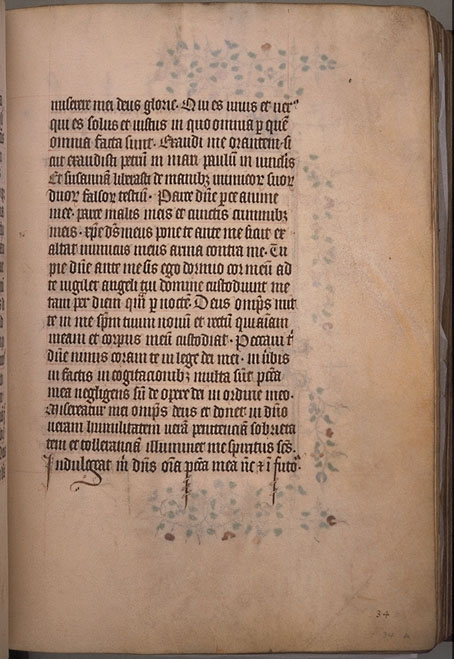 miserere mei deus glorie. Qui es unus et ver9
qui es solus et iustus in quo omnia p quē
omnia facta sunt. Exaudi me orantem si
cut exaudisti petrū in mari paulū in vinclis
Et susannā liberasti de manibz inimicoꝝ suoꝝ
duoꝝ falsoꝝ testiū. Parce dn̄e parce anime
mee. parce malis meis et cunctis criminibz
meis. xp̄e ds̄ meus pone te ante me sicut ex
altat inimicus meus arma contra me. Tu
pie dn̄e ante me sis ego dormio cor meū ad
te vigilet angeli tui domine custodiunt me
tam per diem quā p noctē. Deus omp̄s mit
te in me sp̄m tuum nouū et rectū qui aīam
meam et corpus meū custodiat. Peccaui tͥ
dn̄e nimis coram te in lege dei mei. in v̄bis
in factis in cogitacionibz multa sūt pctā
mea negligens sū de opere dei in ordine meo.
Misereatur mei omp̄s deus et donet in dn̄o
ueram humilitatem uerā penitenciā sobrieta
tem et tolleranciā illuminet me spiritus scs̄.
Indulgeat mͥ dn̄s oīa pctā mea nūc ⁊ ī futo.
34